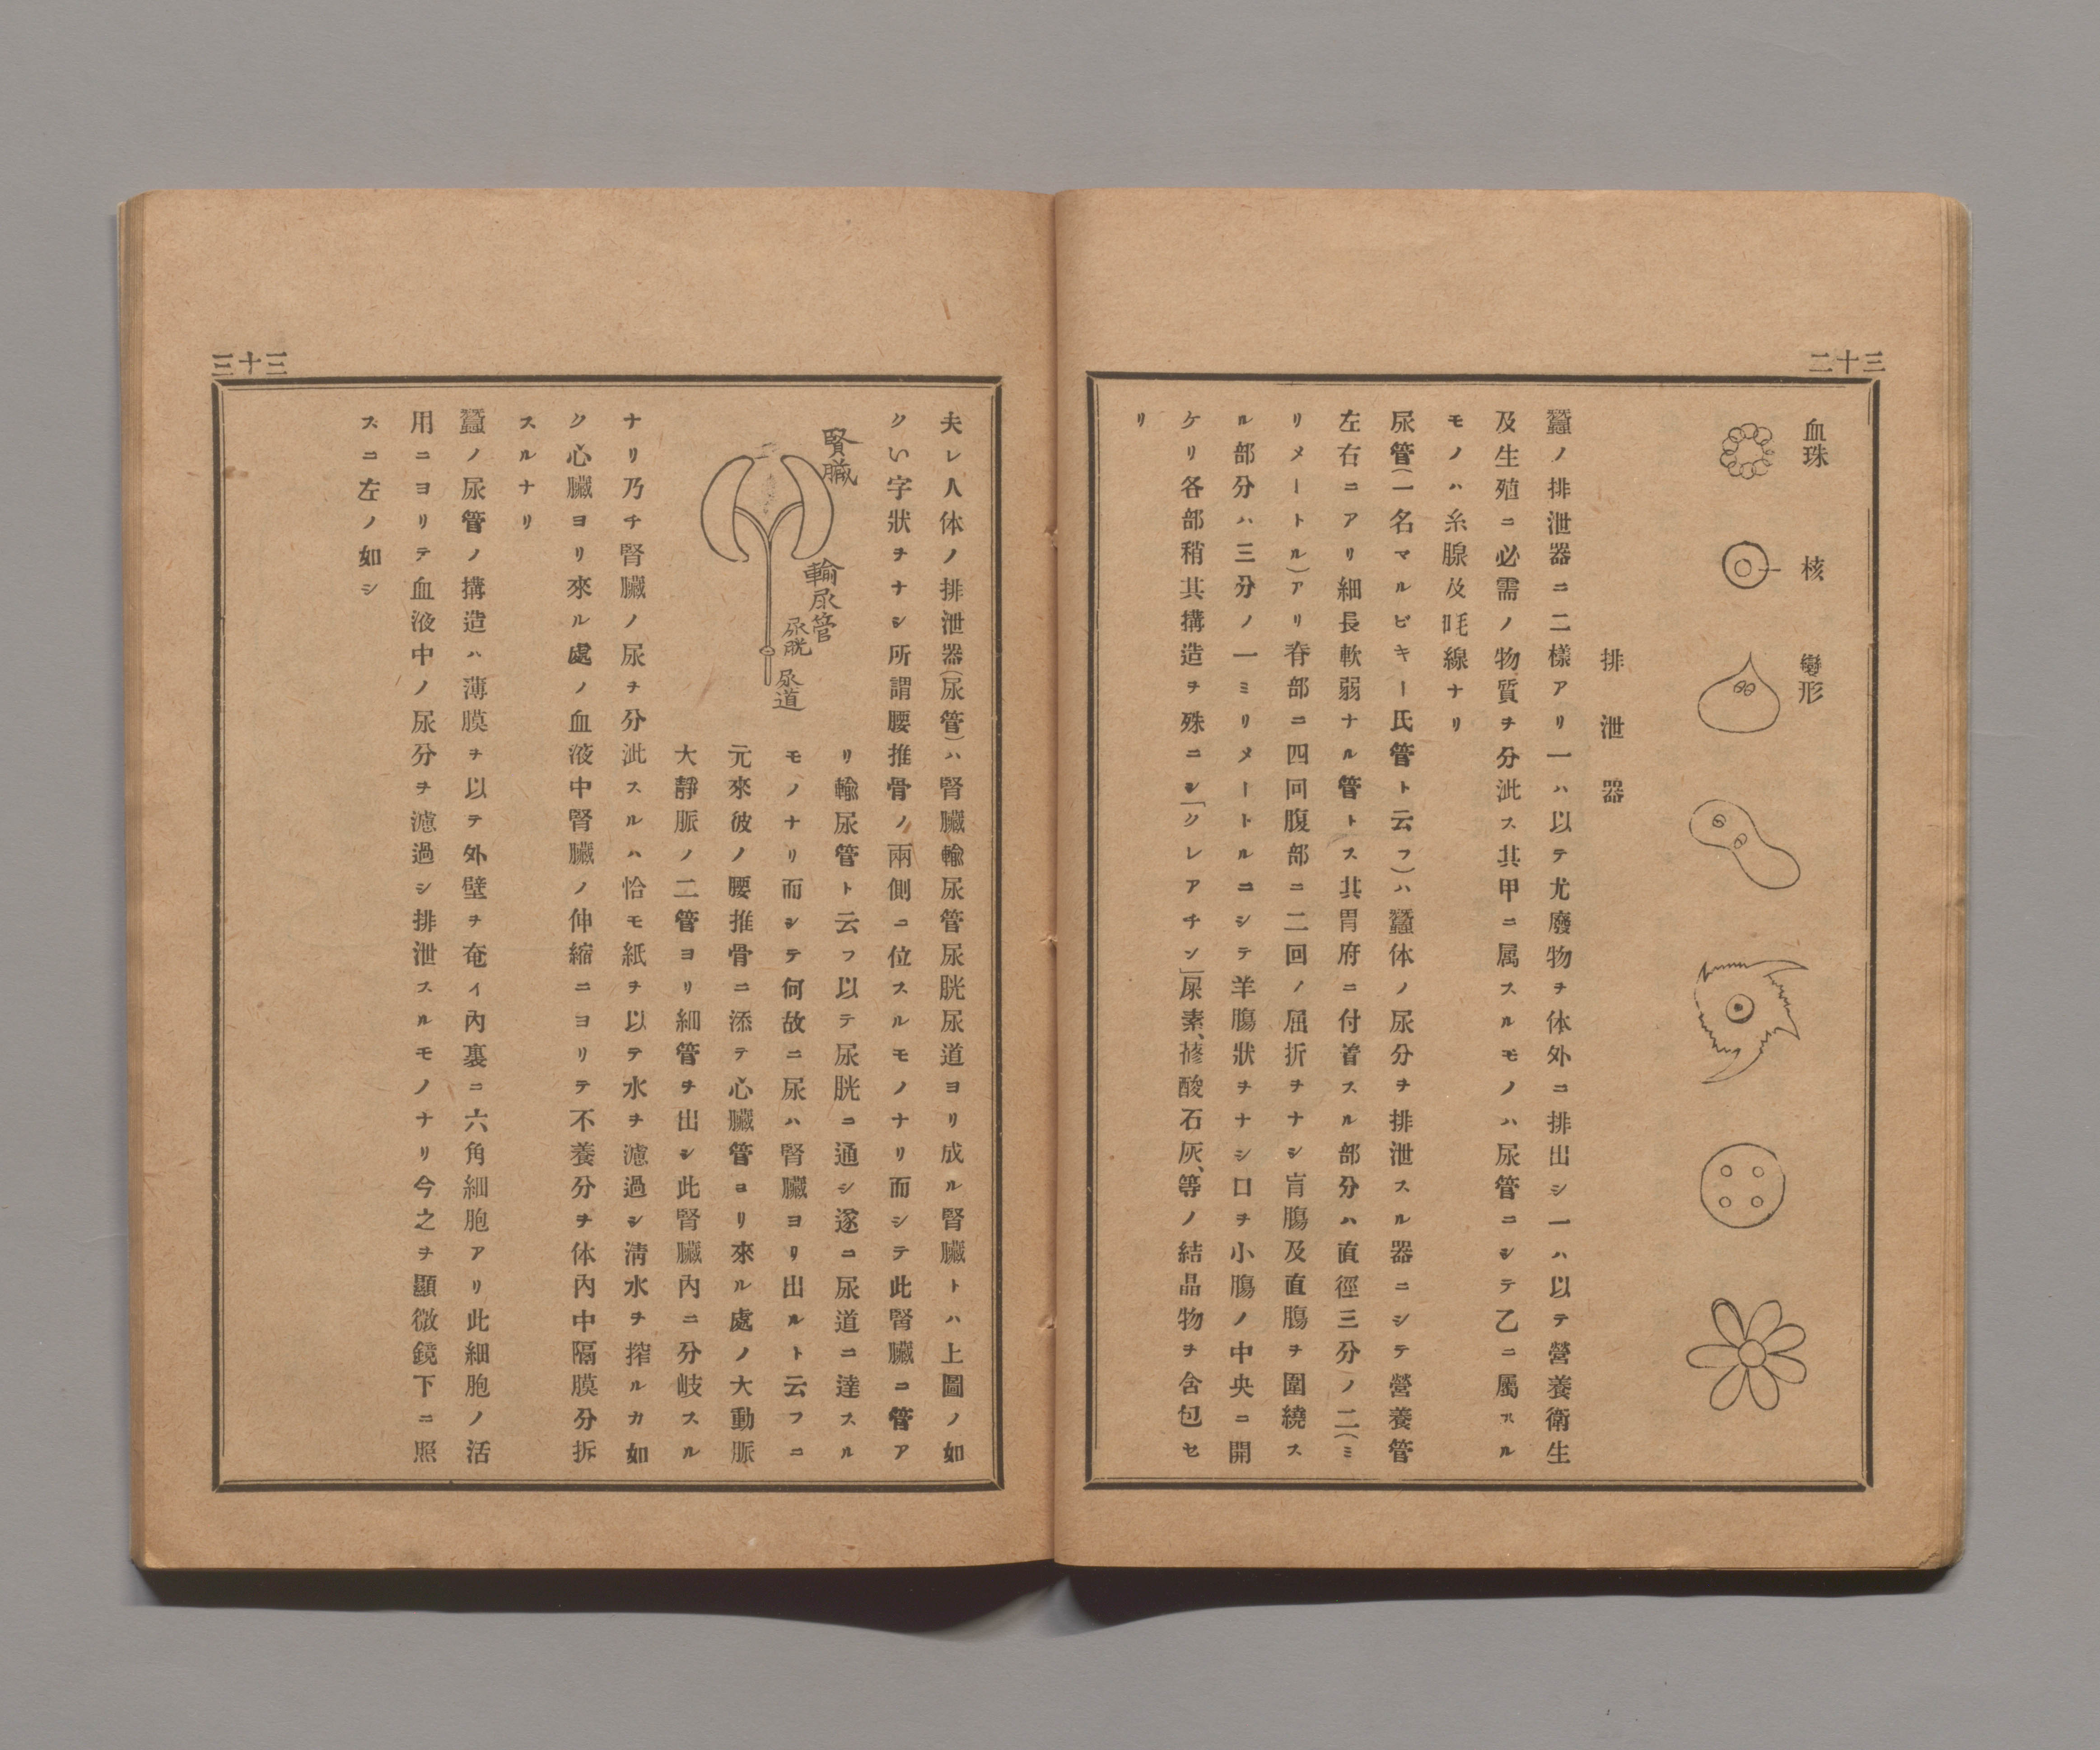 三十二
血珠
核
變形
排泄器
蠶ノ排泄器ニ二樣アリ一ハ以テ尤廢物ヲ体外ニ排出シ一ハ以テ營養衛生
及生殖ニ必需ノ物質ヲ分泚ス其甲ニ属スルモノハ尿管ニシテ乙ニ屬スル
モノハ糸腺及吒線ナリ
尿管(一名マルピキー氏管ト云フ)ハ蠶体ノ尿分ヲ排泄スル器ニシテ營養管
左右ニアリ細長軟弱ナル管トス其胃府ニ付着スル部分ハ直徑三分ノ二(ミ
リメートル)アリ脊部ニ四回腹部ニ二回ノ屈折ヲナシ盲膓及直膓ヲ圍繞ス
ル部分ハ三分ノ一ミリメートルニシテ羊膓狀ヲナシ口ヲ小膓ノ中央ニ開
ケリ各部稍其搆造ヲ殊ニシ「クレアチン」尿素、蓚酸石灰、等ノ結晶物ヲ含包セ
リ
三十三
夫レ人体ノ排泄器(尿管)ハ腎臟輸尿管尿胱尿道ヨリ成ル腎臟トハ上圖ノ如
クい字狀ヲナシ所謂腰推骨ノ兩側ニ位スルモノナリ而シテ此腎臟ニ管ア
リ輸尿管ト云フ以テ尿胱ニ通シ遂ニ尿道ニ達スル
モノナリ而シテ何故ニ尿ハ腎臟ヨリ出ルト云フニ
元來彼ノ腰推骨ニ添テ心臟管ヨリ來ル處ノ大動脈
大靜脈ノ二管ヨリ細管ヲ出シ此腎臟內ニ分岐スル
腎臟
輸尿管
尿胱
尿道
ナリ乃チ腎臟ノ尿ヲ分泚スルハ恰モ紙ヲ以テ水ヲ濾過シ淸水ヲ搾ルカ如
ク心臟ヨリ來ル處ノ血液中腎臟ノ伸縮ニヨリテ不養分ヲ体內中隔膜分拆
スルナリ
蠶ノ尿管ノ搆造ハ薄膜ヲ以テ外壁ヲ奄イ內裏ニ六角細胞アリ此細胞ノ活
用ニヨリテ血液中ノ尿分ヲ濾過シ排泄スルモノナリ今之ヲ顯微鏡下ニ照
スニ左ノ如シ